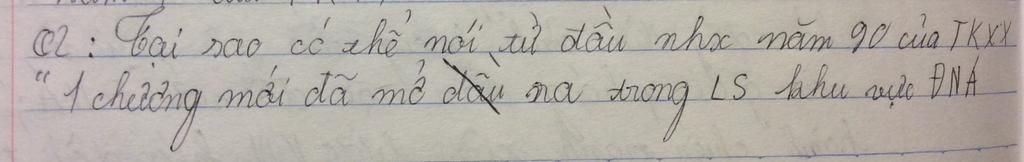 C2 : Tại sao có thể nói từ đầu nhx năm 90 của TKXX
"1 chương mới đã mở ra trong LS khu vực ĐNÁ